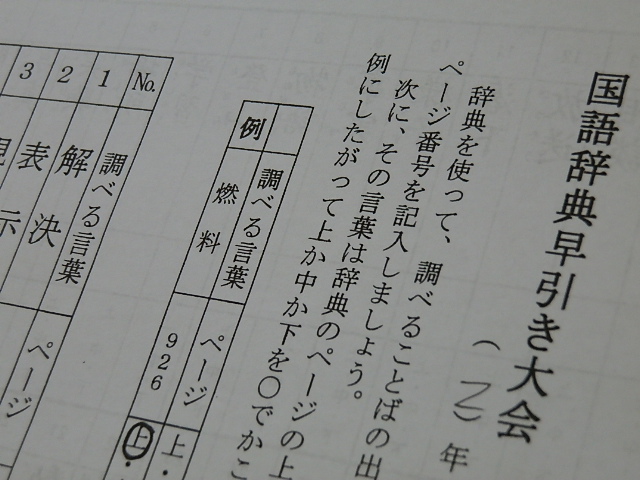 国語辞典早引き大会
年
辞典を使って、調べることばの出
ページ番号を記入しましょう。
次に、その言葉は辞典のページの上
例にしたがって上か中か下を○でかこ
調べる言葉 ページ 上・
例 燃料 926 上・
No. 調べる言葉 ページ
1 解決
2 表示
3